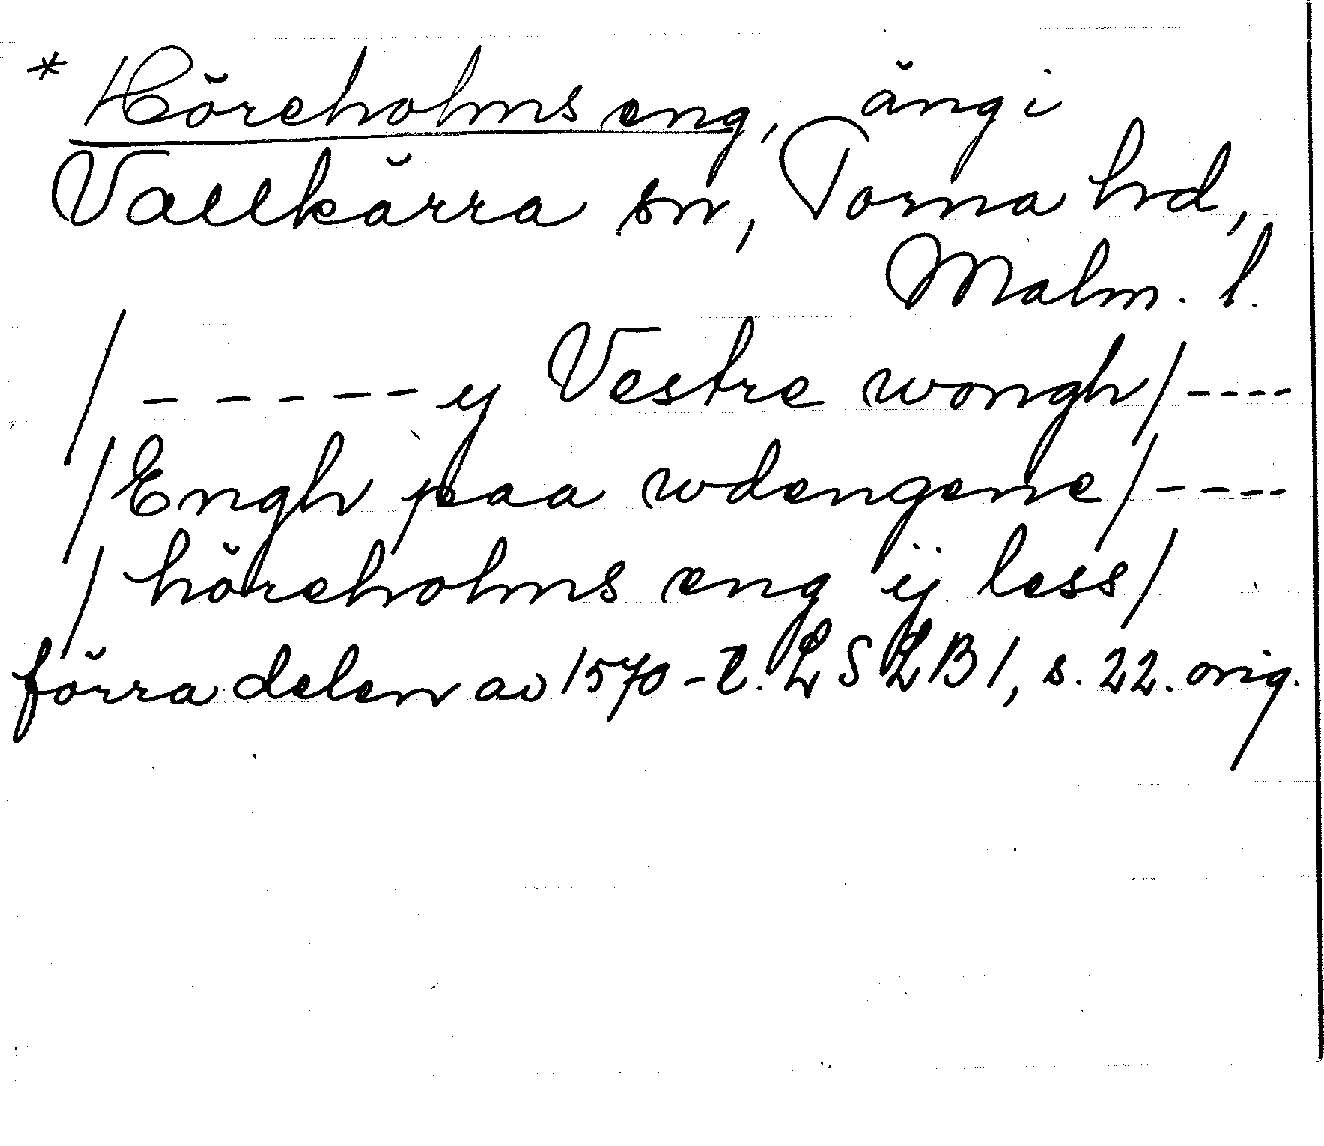 * Höreholms eng, äng i
Vallkärra sn, Torna hd,
Malm. l.
/ - - - - - y Vestre wongh / - - - -
/ Engh paa wdengene / - - - -
/ höreholms eng ÿ less /
förra delen av 1570-t. LSLB 1, s. 22. orig.